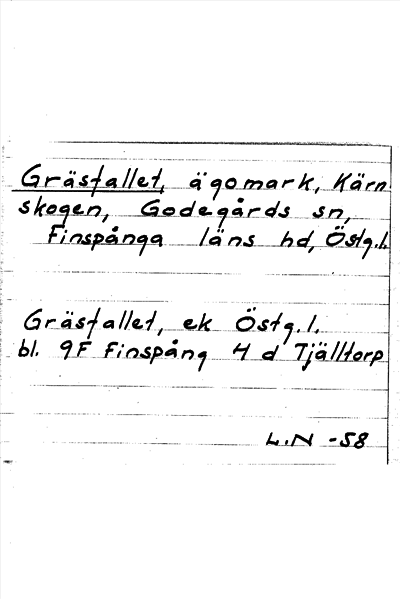 Gräsfallet, ägomark, Kärn
skogen, Godegårds sn,
Finspånga läns hd, Östg.l.
Gräsfallet, ek Östg.l.
bl. 9F Finspång 4 d Tjälltorp
L.N -58